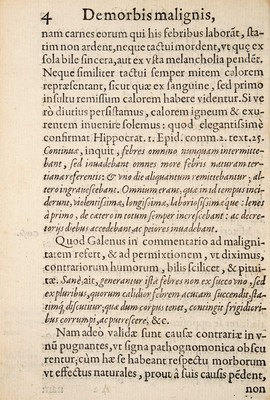 4 De morbis malignis,
nam carnes eorum qui his febribus laborãt, sta-
tim non ardent, neque tactui mordent, vt quę ex
sola bile sincera, aut ex vsta melancholia pendẽt.
Neque similiter tactui semper mitem calorem
repræsentant, sicut quæ ex sanguine, sed primo
insultu remissum calorem habere videntur. Si ve
rò diutius persistamus, calorem igneum & exu-
rentem inuenire solemus: quod elegantissimè
confirmat Hippocrat. 1. Epid. comm. 2. text. 25.
Continuæ, inquit, febres omnino nunquam intermitte-
bant, sed inuadebant omnes more febris naturam ter-
tianæ referentis: & vno die aliquantum remittebantur, al-
tero ingrauescebant. Omnium eranc, quæ in id tempus inci-
derunt, violentissimæ, longissimæ, laboriosissimæque: lenes
à primo, de cætero in totum semper increscebant: ac decre-
torijs diebus accedebant, ac peiores inuadebant.
Quod Galenus in commentario ad maligni-
tatem refert, & ad permixtionem, vt diximus,
contrariorum humorum, bilis scilicet, & pitui-
tæ. Sanè, ait, generantur istæ febres non ex succo vno, sed
ex pluribus, quorum calidior febrem acutam succendit, sta-
timq; discutitur: quæ dum corpus tenet, contingit frigidiori-
bus corrumpi, ac putrescere, &c.
Nam adeo validæ sunt causæ contrariæ in v-
nũ pugnantes, vt signa pathognomonica obscu
rentur, cùm hæ se habeant respectu morborum
vt effectus naturales, prout à suis causis pẽdent,
non